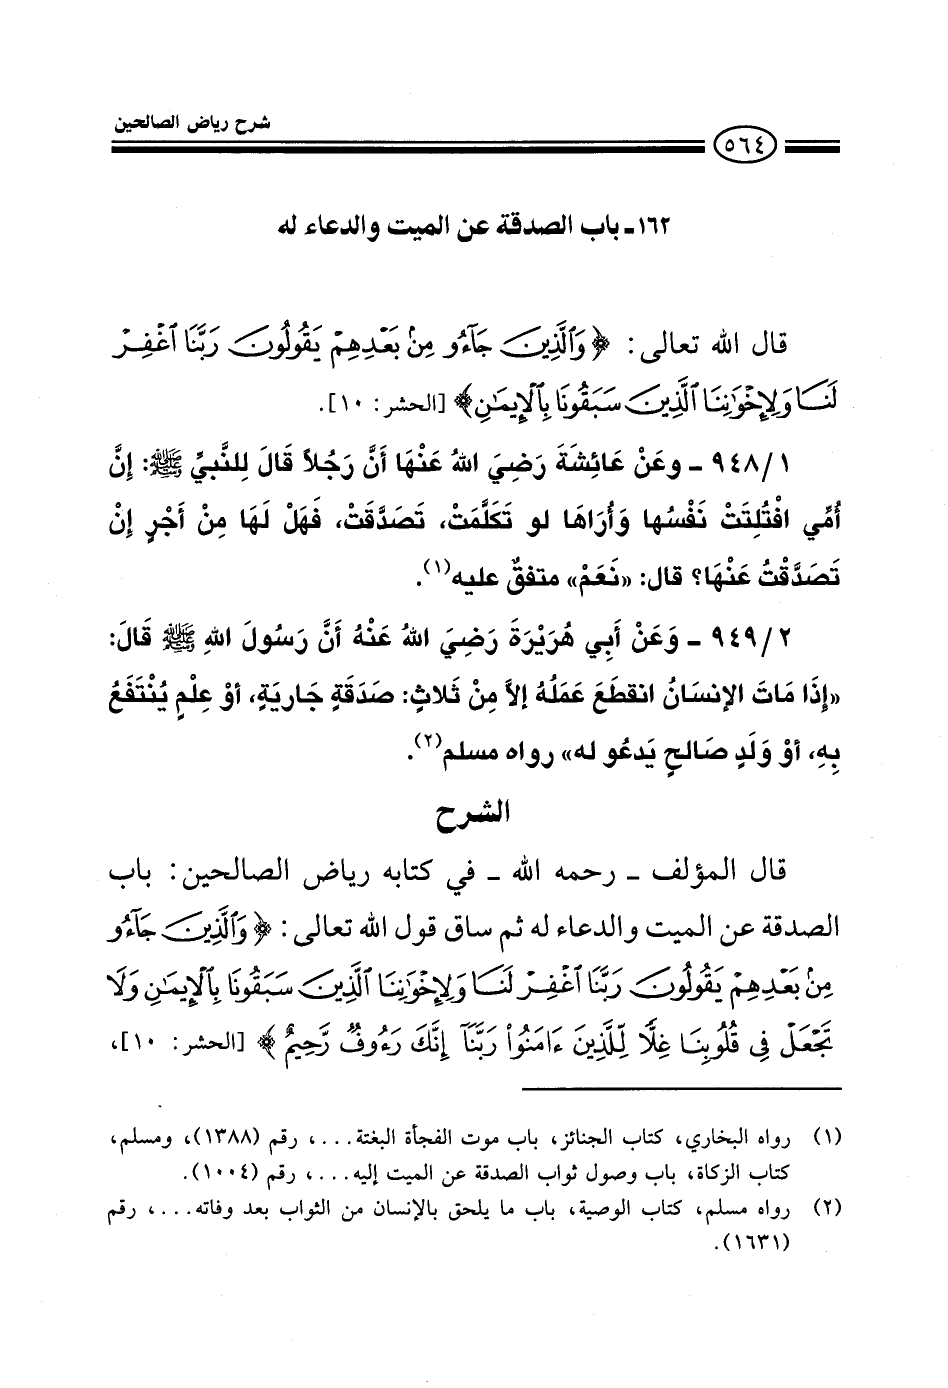 شرح رياض الصالحين
٥٦٤
١٦٢ـ باب الصدقة عن الميت والدعاء له
قال الله تعالى: ﴿ وَٱلَّذِينَ جَآءُو مِنۢ بَعْدِهِمْ يَقُولُونَ رَبَّنَا ٱغْفِرْ
لَنَا وَلِإِخْوَٰنِنَا ٱلَّذِينَ سَبَقُونَا بِٱلْإِيمَٰنِ﴾ [الحشر: ١٠].
٩٤٨/١ ـ وعَنْ عَائِشَةَ رَضِيَ اللهُ عَنْهَا أَنَّ رَجُلاً قَالَ لِلنَّبِيِّ ﷺ: إِنَّ
أُمِّي افْتُلِتَتْ نَفْسُها وَأُرَاهَا لو تَكَلَّمَتْ، تَصَدَّقَتْ، فَهَلْ لَهَا مِنْ أَجْرٍ إِنْ
تَصَدَّقْتُ عَنْهَا؟ قال: «نَعَمْ» متفقٌ عليه(١).
٩٤٩/٢ ـ وَعَنْ أَبِي هُرَيْرَةَ رَضِيَ اللهُ عَنْهُ أَنَّ رَسُولَ اللهِ ﷺ قَالَ:
«إِذَا مَاتَ الإنسَانُ انقطَعَ عَمَلُهُ إلاَّ مِنْ ثَلاثٍ: صَدَقَةٍ جَارِيَةٍ، أوْ عِلْمٍ يُنْتَفَعُ
بِهِ، أوْ وَلَدٍ صَالحٍ يَدعُو له» رواه مسلم(٢).
الشرح
قال المؤلف ـ رحمه الله ـ في كتابه رياض الصالحين: باب
الصدقة عن الميت والدعاء له ثم ساق قول الله تعالى: ﴿ وَٱلَّذِينَ جَآءُو
مِنۢ بَعْدِهِمْ يَقُولُونَ رَبَّنَا ٱغْفِرْ لَنَا وَلِإِخْوَٰنِنَا ٱلَّذِينَ سَبَقُونَا بِٱلْإِيمَٰنِ وَلَا
تَجْعَلْ فِى قُلُوبِنَا غِلًّا لِّلَّذِينَ ءَامَنُوا۟ رَبَّنَآ إِنَّكَ رَءُوفٌ رَّحِيمٌ ﴾ [الحشر: ١٠]،
(١) رواه البخاري، كتاب الجنائز، باب موت الفجأة البغتة...، رقم (١٣٨٨)، ومسلم،
كتاب الزكاة، باب وصول ثواب الصدقة عن الميت إليه...، رقم (١٠٠٤).
(٢) رواه مسلم، كتاب الوصية، باب ما يلحق بالإنسان من الثواب بعد وفاته...، رقم
(١٦٣١).